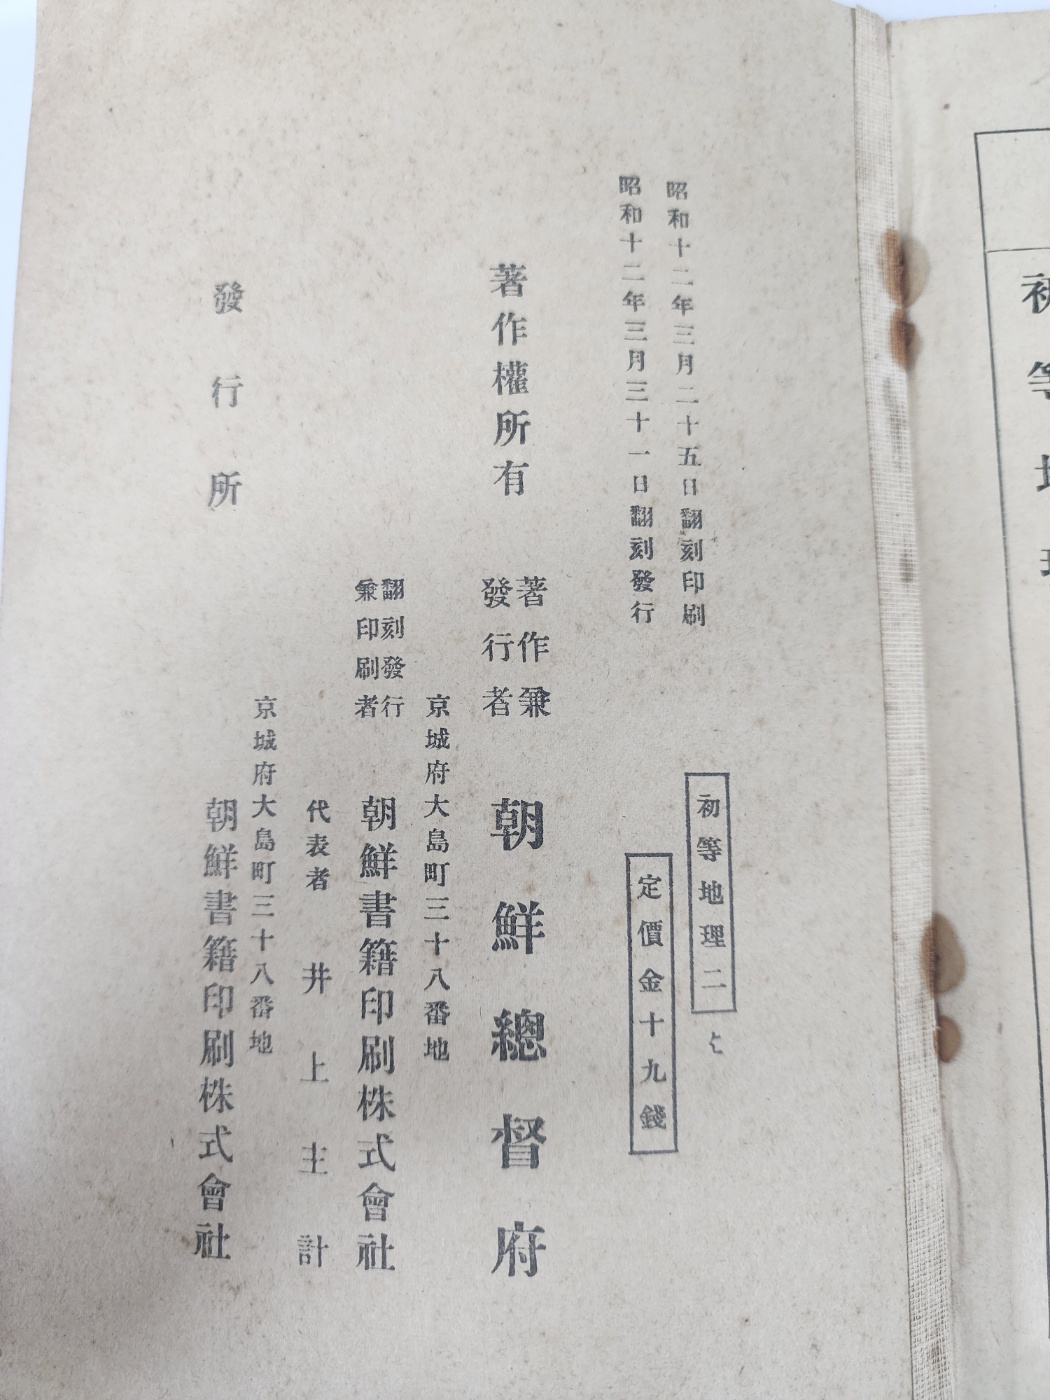 初等地理
昭和十二年三月二十五日翻刻印刷
昭和十二年三月三十一日翻刻發行
初等地理二
と
定價金十九錢
著作權所有
著作兼
發行者
朝鮮總督府
京城府大島町三十八番地
翻刻發行
兼印刷者
朝鮮書籍印刷株式會社
代表者 井上主計
京城府大島町三十八番地
發行所
朝鮮書籍印刷株式會社